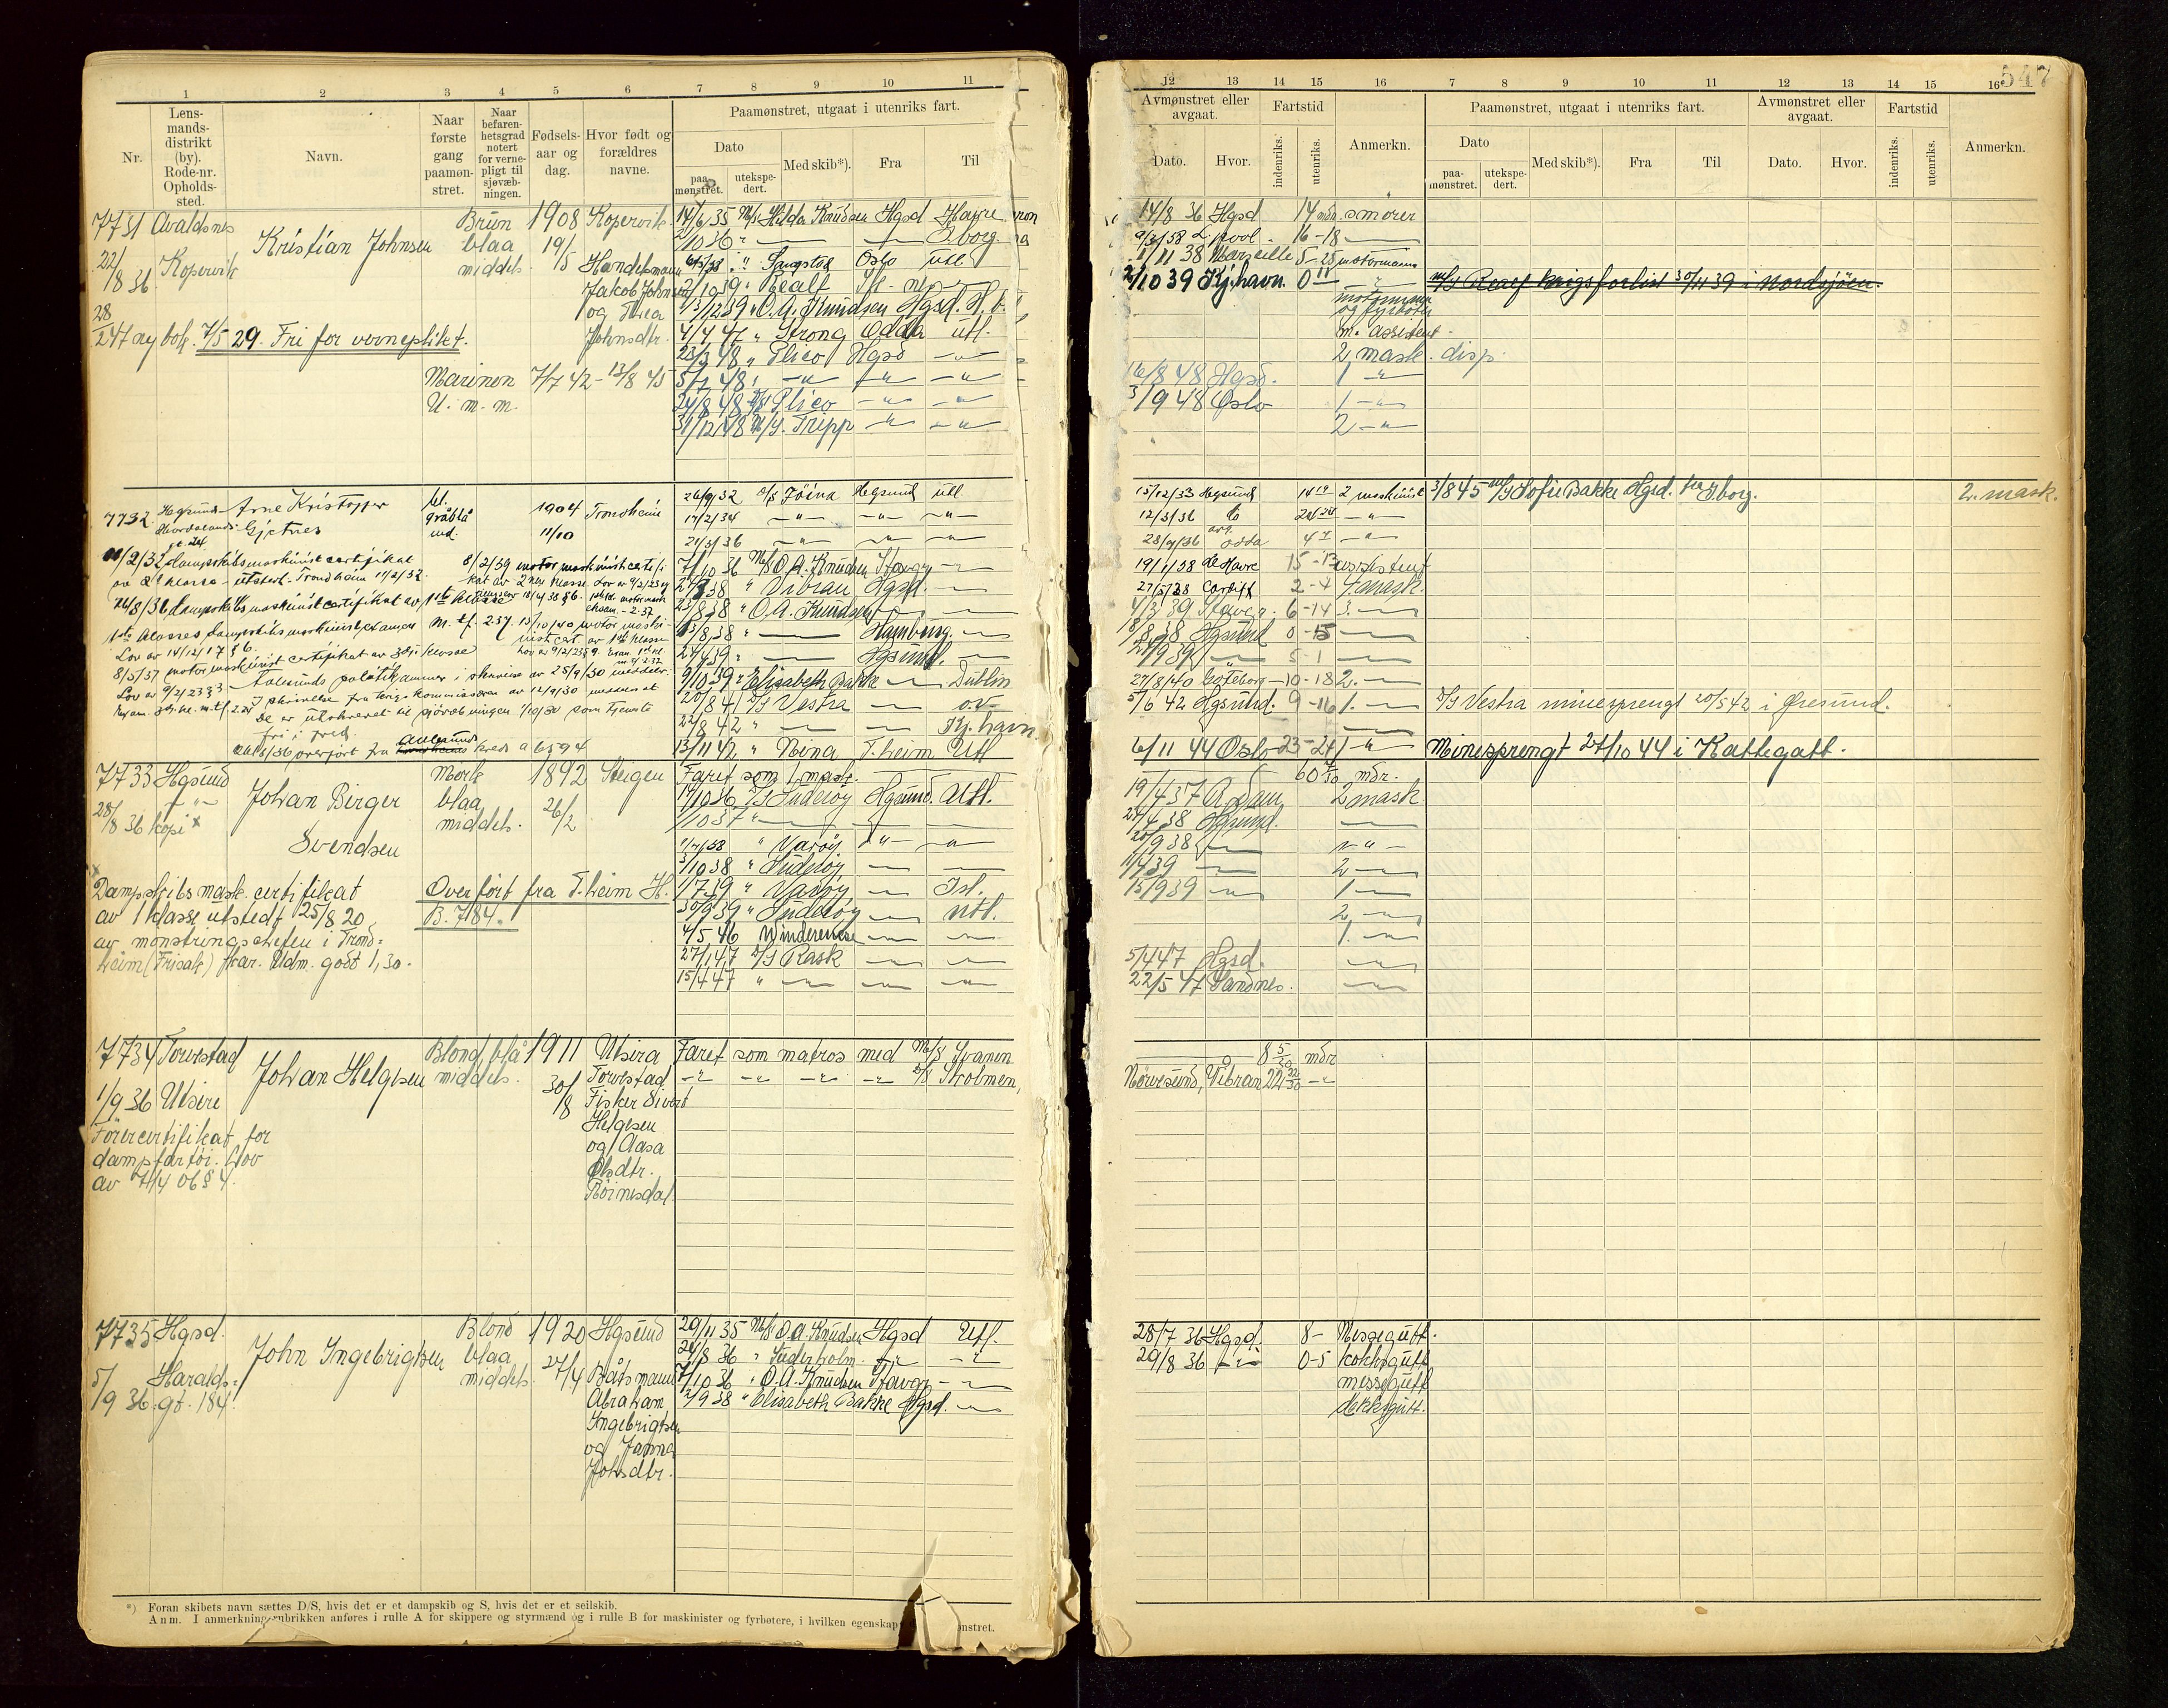 1 2 3 4 5 6 7 8 9 10 11
Nr.
Lens-
mands-
distrikt
(by).
Rode-nr.
Opholds-
sted.
Navn.
Naar
første
gang
paamøn-
stret.
Naar
befaren-
hetsgrad
notert
for verne-
pligt til
sjøvæb-
ningen.
Fødsels-
aar og
dag.
Hvor født og
forældres
navne.
Paamønstret, utgaat i utenriks fart.
Dato
paa-
mønstret.
utekspe-
dert.
Med skib*).
Fra
Til
7731 Avaldsnes
Kristian Johnsen
Brun 1908 Kopervik
blaa 19/5
middels
22/8 36 Kopervik
Handelsmann
Jakob Johnsen
og Thea
Johnsdtr.
28
247 ny bok. 7/5 29. Fri for verneplikt.
Marinen 7/7 42 - 13/8 45
U. m. m.
14/6 35 M/S Hilda Knudsen Hgsd Havre
2/10 36 " — — G.borg
6/5/38 " Sangstad Oslo utl
2/10 39 " Realf
13/12 39 " O. A. Knudsen Hgsd.
4/7 47 " Strong Odda utl.
23/3 48 " Plico Hgsd —"—
5/7 48 " —"— —"— —"—
24/8 48 Plico —"— —"—
31/12 48 M/S. Tripp —"— —"—
7732 Hgsund Arne Kristoffer
Gjetnes
bl.
gråblå
md.
1904 Trondheim
11/10
26/9/32 D/S Jöina Hgsund utl
17/2/34 —"— —"— —"—
21/3/36 —"— —"— —"—
7/10 36 M/S O. A. Knudsen Stavgr —"—
38 " Vibran Hgsd. —
23/8 38 " O. A. Knudsen — —
13/8 38 " — Hamburg. —
24/4 39 " — Hgsund. —
9/10 39 " Elisabeth Bakke — Dublin
20/8 41 D/S Vestra —
22/8 42 " — — Kj.havn
13/11 42 " Nina T.heim Utl
11/2/32 Dampskibsmaskinistcertifikat
av 2 klasse utstedt Trondheim 11/2/32.
8/2/39 motormaskinistcertifi-
kat av 2nen klasse. Lov av 9/2 23 §9
24/8/36 Dampskibsmaskinistcertifikat av 1ste klasse
1ste klasses dampskibsmaskinisteksamen M. tf. 2.37 13/10/40 motor maski-
Lov av 14/12/17 § 6. nistcert. av 1ste klasse
8/5/37 motormaskinist certifikat av 3dje klasse
Lov av 9/2 23 § 3 Aalesunds politikammer i skrivelse av 25/9/30 meddeler:
I skrivelse fra krigskommissæren av 12/9/30 meddeles at
De er utskrevet til sjövæbningen 1/10/30 som tjeneste
fri i fred.
overført fra Aalesunds kreds a 6594
7733 Hgsund
Johan Birger
Svendsen
Mørk 1892 Steigen
blaa 26/2
middels.
28/8 36 kopi x
Faret som 1 mask. —
19/10 36 D/S Suderöy Hgsund. Utl.
1/10 37 " — — —
1/7/38 " Varöy —"— —"—
3/10 38 " Suderöy — —
1/7 39 " Varöy — Isl.
30/9 39 " Suderöy — Utl.
4/5 46 Vinderense — —
27/1 47 D/S Rask — —
15/4 47 " — — —
x
Dampskibs mask. certifikat
av 1 klasse utstedt 25/8 20
av mönstringschefen i Trond=
heim (Frisak) Kar. Udm. godt 1,30.
Overført fra T.heim H.
B. 784.
7734 Torvestad
Johan Helgesen
Blond, blå 1911 Utsira
middels. 30/8 Torvestad
1/9 36 Utsire
Fisker Sivert
Helgesen
og Aasa
Olsdtr.
Förercertifikat for
dampfartöi. Lov
av 7/4 06 § 4.
Faret som matros med M/S Svanen
—"— —"— —"— —"— D/S Skolmen,
7735 Hgsd.
John Ingebrigtsen
Blond 1920 Hgsund
blaa 27/4
middels.
5/9 36 Haralds=
gt. 184.
Båtsmann
Abraham
Ingebrigtsen
og Janna
Johsdtr.
29/11 35 M/S O. A. Knudsen Hgsd Utl.
24/8 36 " Suderholm —"— —"—
7/10 36 " O. A. Knudsen Stavgr —"—
2/9 38 " Elisabeth Bakke Hgsd. —"—
*) Foran skibets navn sættes D/S, hvis det er et dampskib og S, hvis det er et seilskib.
Anm. I anmerkningsrubrikken anføres i rulle A for skippere og styrmænd og i rulle B for maskinister og fyrbøtere, i hvilken egenskap
ønstret.
547
12 13 14 15 16 7 8 9 10 11 12 13 14 15 16
Avmønstret eller
avgaat.
Dato. Hvor.
Fartstid
indenriks.
utenriks.
Anmerkn.
Paamønstret, utgaat i utenriks fart.
Dato
paa-
mønstret.
utekspe-
dert.
Med skib*).
Fra
Til
Avmønstret eller
avgaat.
Dato. Hvor.
Fartstid
indenriks.
utenriks.
Anmerkn.
14/8 36 Hgsd 14 mdn. smører
9/3/38 L.pool. 16-18 —
1/11 38 Marseille 5-25 motormann
2/10 39 Kj.havn. 0 11 —"— M/S Realf krigsforlist 30/11 39 i Nordsjöen.
motormann
og fyrböter
m. assistent.
2 mask. disp.
16/8 48 Hgsd. 1 —"—
3/9 48 Oslo 1 —"—
2 —"—
15/12/33 Hgsund 14 19 2 maskinist 3/8 45 M/S Sofie Bakke Hgsd. fra G.borg. 2. mask.
12/3/36 —"—
28/9/36 Odda 4 7 —"—
19/1/38 Le Havre 15-13 assistent
27/5/38 Cardiff 2-4 4 mask.
4/3 39 Stavgr. 6-14 3. —
8/8 38 Hgsund 0-15 —
39 — 5-1 —
27/8/40 Göteborg 10-18 2. —
5/6 42 Hgsund. 9-16 1. — D/S Vestra minesprengt 20/5 42 i Øresund.
6/11 44 Oslo 23-24 —"— Minesprengt 27/10 44 i Kattegatt.
60 mdr.
19/4 37 A.dam 2 mask
27/4 38 Hgsund. —
20/9 38 — —"—
11/4 39 — 2 —
15/9 39 — 1 —
2 —
1. —
5/4 47 Hgsd. —
22/5 47 Sandnes. —
8 5/30 mdr
Nörvesund, Vibran 22 22/30 —"—
28/7 36 Hgsd. 8 - Messegutt.
29/8 36 —"— 0-5 kokksgutt
messegutt
dekksgutt.